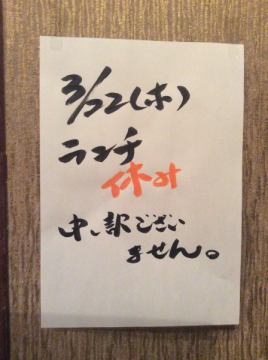 3/22(木)
ランチ
休み
申し訳ござい
ません。